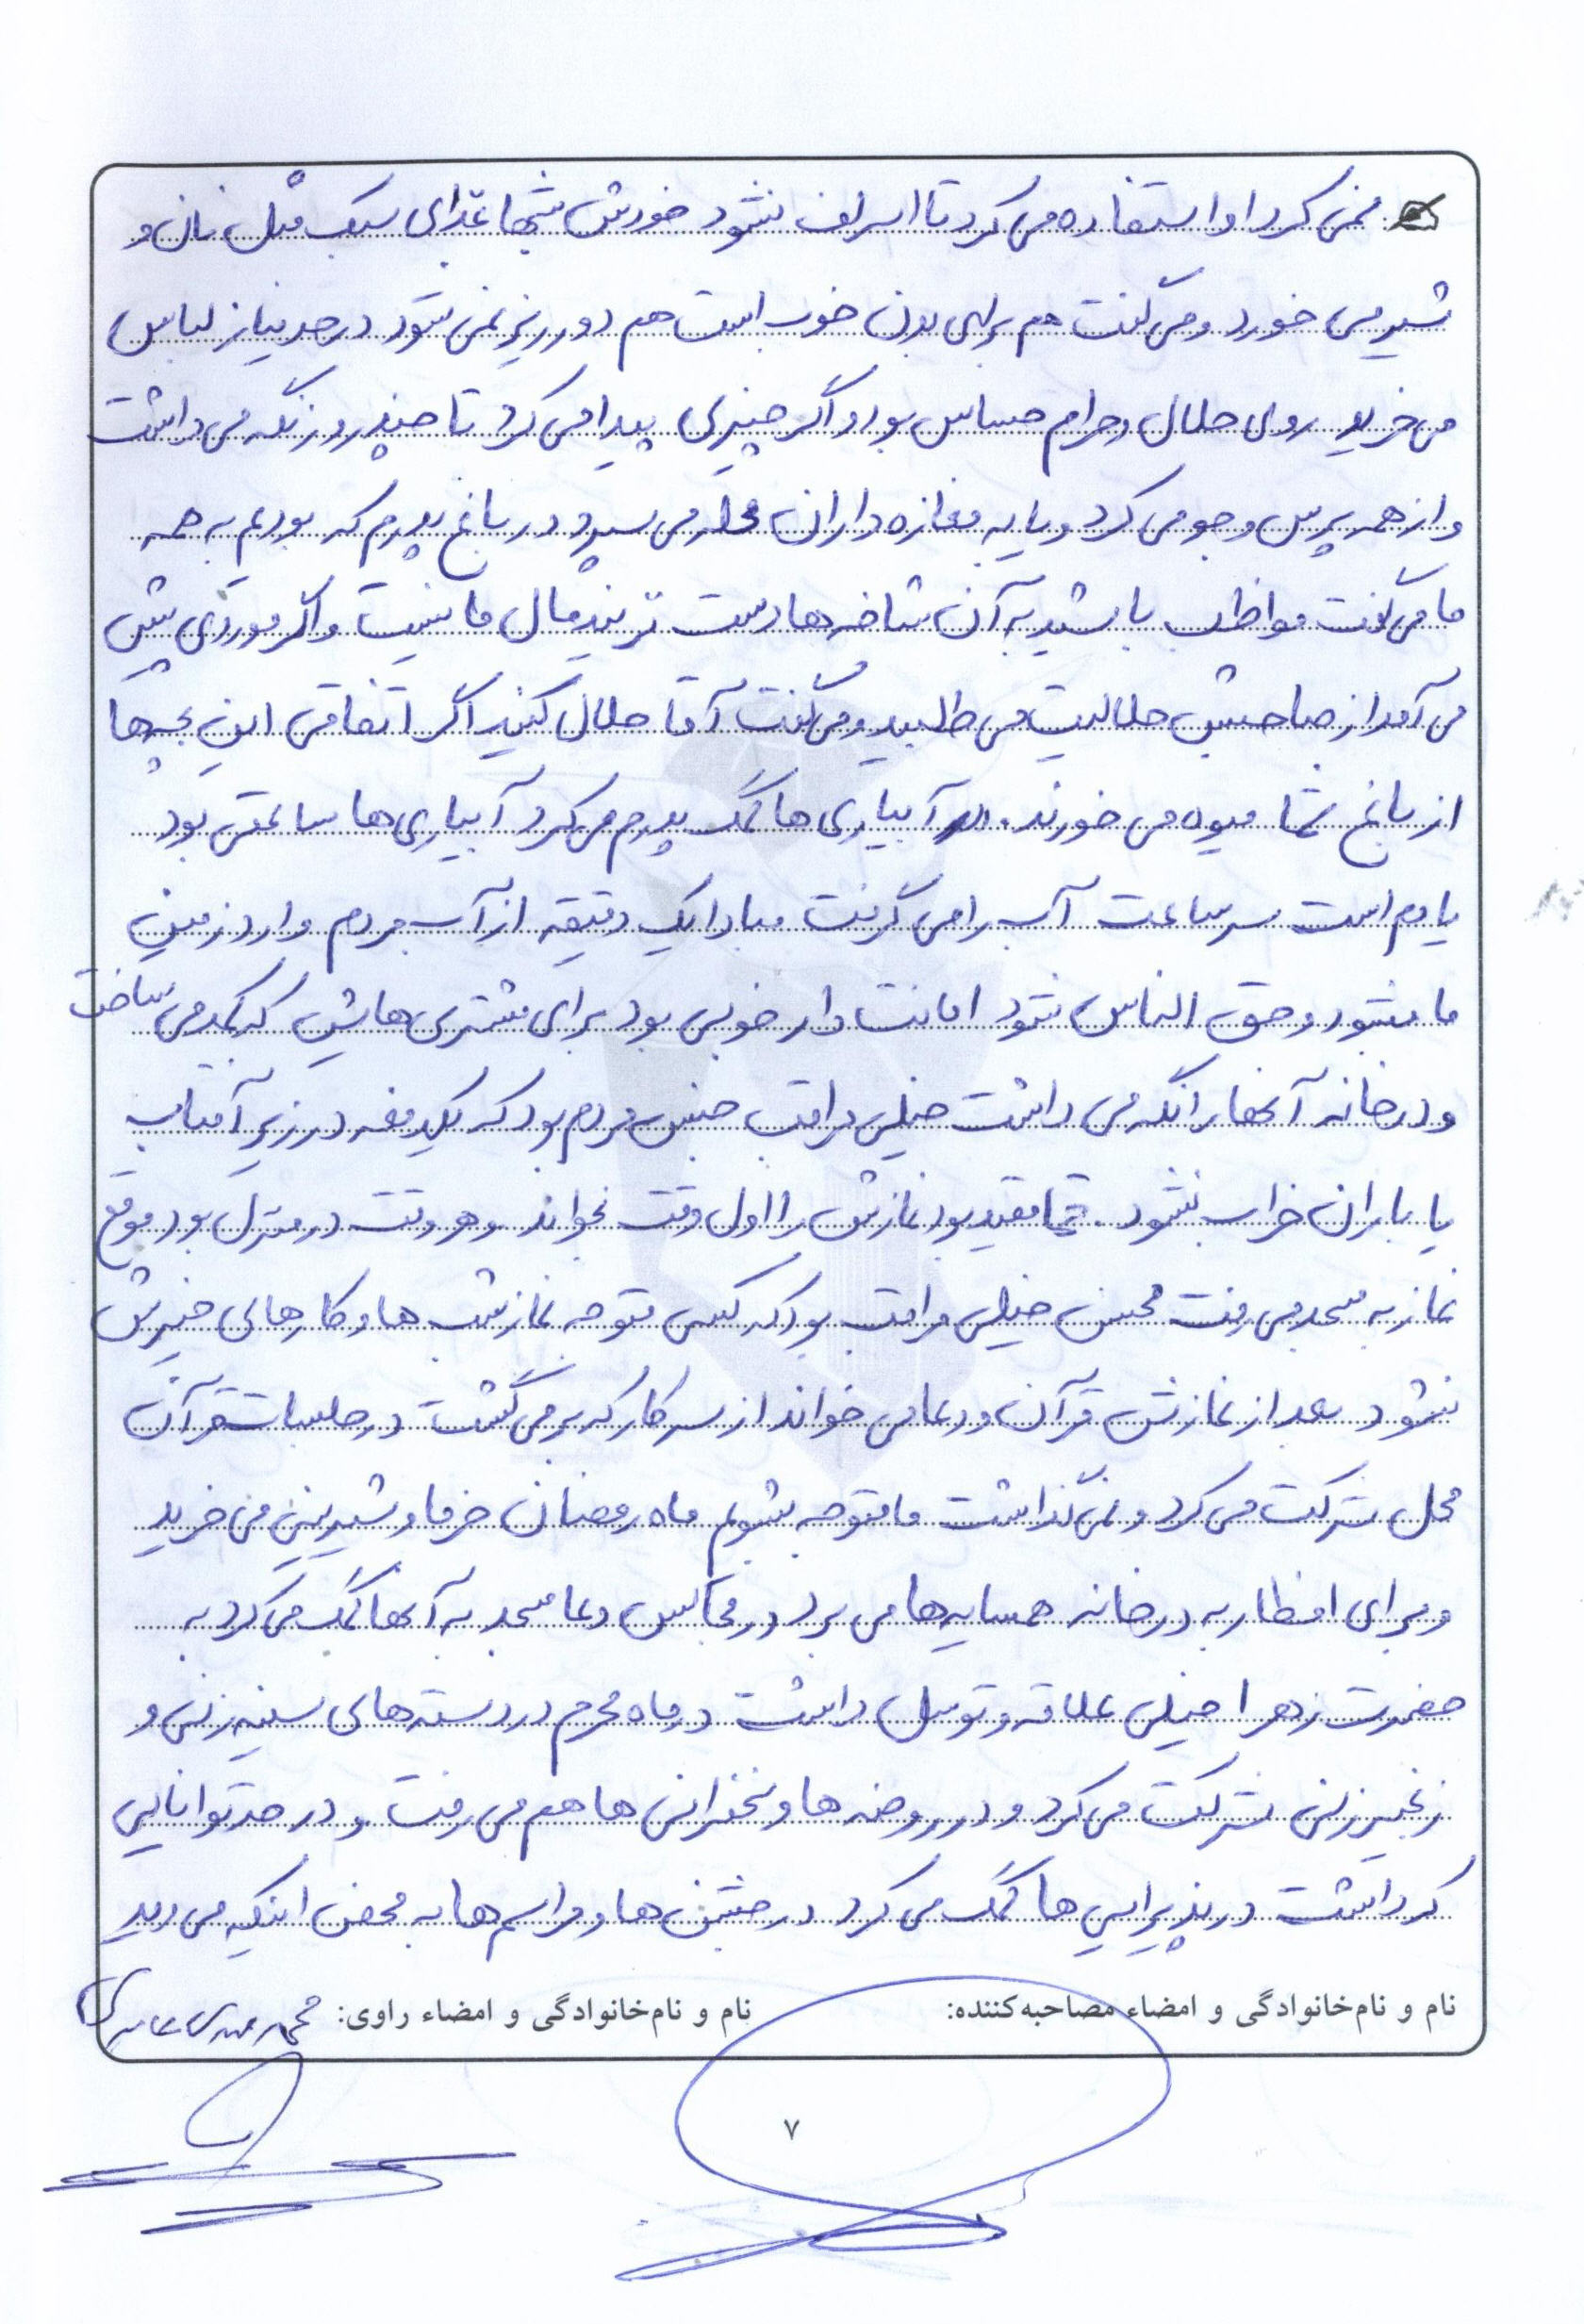 نمی کرد او استفاده می کرد تا اسراف نشود خورش شبها غذای سبک مثل نان و
شیر می خورد و می گفت هم برای بدن خوب است هم دورریز نمی شود در حد نیاز لباس
می خرید روی حلال و حرام حساس بود و اگر چیزی پیدا می کرد تا چند روز نگه می داشت
و از همه پرس و جو می کرد و یا به مغازه داران محله می سپرد در باغ پدرم که بودیم به همه
ما می گفت مواظب باشید به آن شاخه ها دست نزنید مال ما نیست و اگر موردی پیش
می آمد از صاحبش حلالیت می طلبید و می گفت آقا حلال کنید اگر اتفاقی این بچه ها
از باغ شما میوه می خورند. در آبیاری ها کمک پدرم می کرد آبیاری ها ساعتی بود
یادم است سر ساعت آب را می گرفت مبادا یک دقیقه از آب مردم وارد زمین
ما بشود و حق الناس شود امانت دار خوبی بود برای مشتری هایش که کمد می ساخت
و در خانه آنها را نگه می داشت خیلی مراقب جنس مردم بود که یکدفعه در زیر آفتاب
یا باران خراب نشود. حتما مقید بود نمازش را اول وقت بخواند و هر وقت در منزل بود موقع
نماز به مسجد می رفت محسن خیلی مراقب بود که کسی متوجه نماز شب ها و کارهای خیرش
نشود بعد از نمازش قرآن و دعا می خواند از سر کار که برمی گشت در جلسات قرآن
محل شرکت می کرد و نمی گذاشت ما متوجه بشویم ماه رمضان خرما و شیرینی می خرید
و برای افطار به در خانه همسایه ها می برد در مجالس دعا مسجد به آنها کمک می کرد به
حضرت زهرا خیلی علاقه و توسل داشت در ماه محرم در دسته های سینه زنی و
زنجیر زنی شرکت می کرد و در روضه ها و سخنرانی ها هم می رفت و در حد توانایی
که داشت در پذیرایی ها کمک می کرد در جشن ها و مراسم ها به محض اینکه می دید
نام و نام‌خانوادگی و امضاء مصاحبه‌کننده: نام و نام‌خانوادگی و امضاء راوی: محمدمهدی
۷